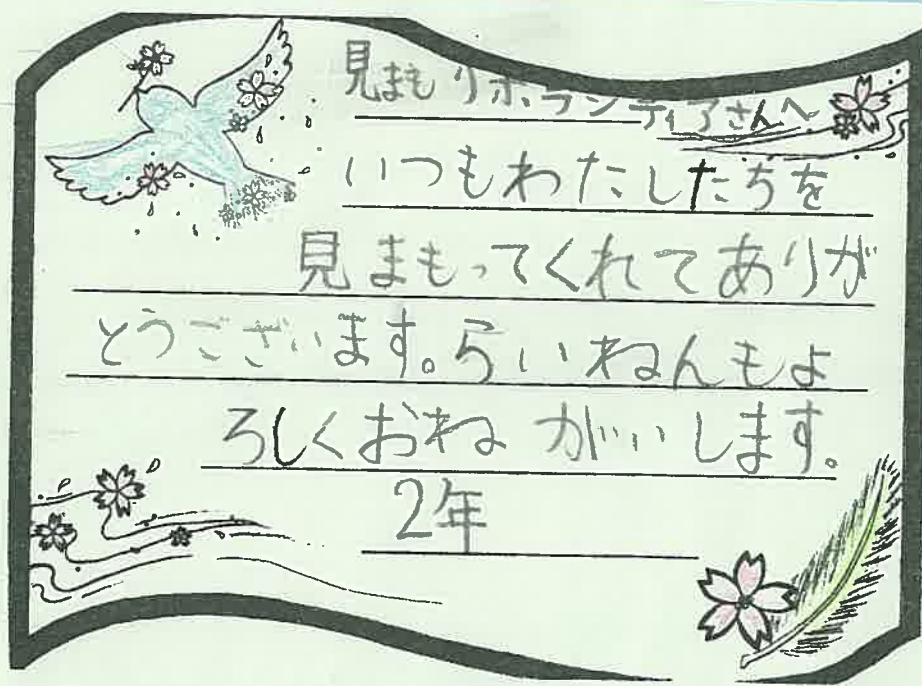 見まもりボランティアさんへ
いつもわたしたちを
見まもってくれてありが
とうございます。らいねんもよ
ろしくおねがいします。
2年